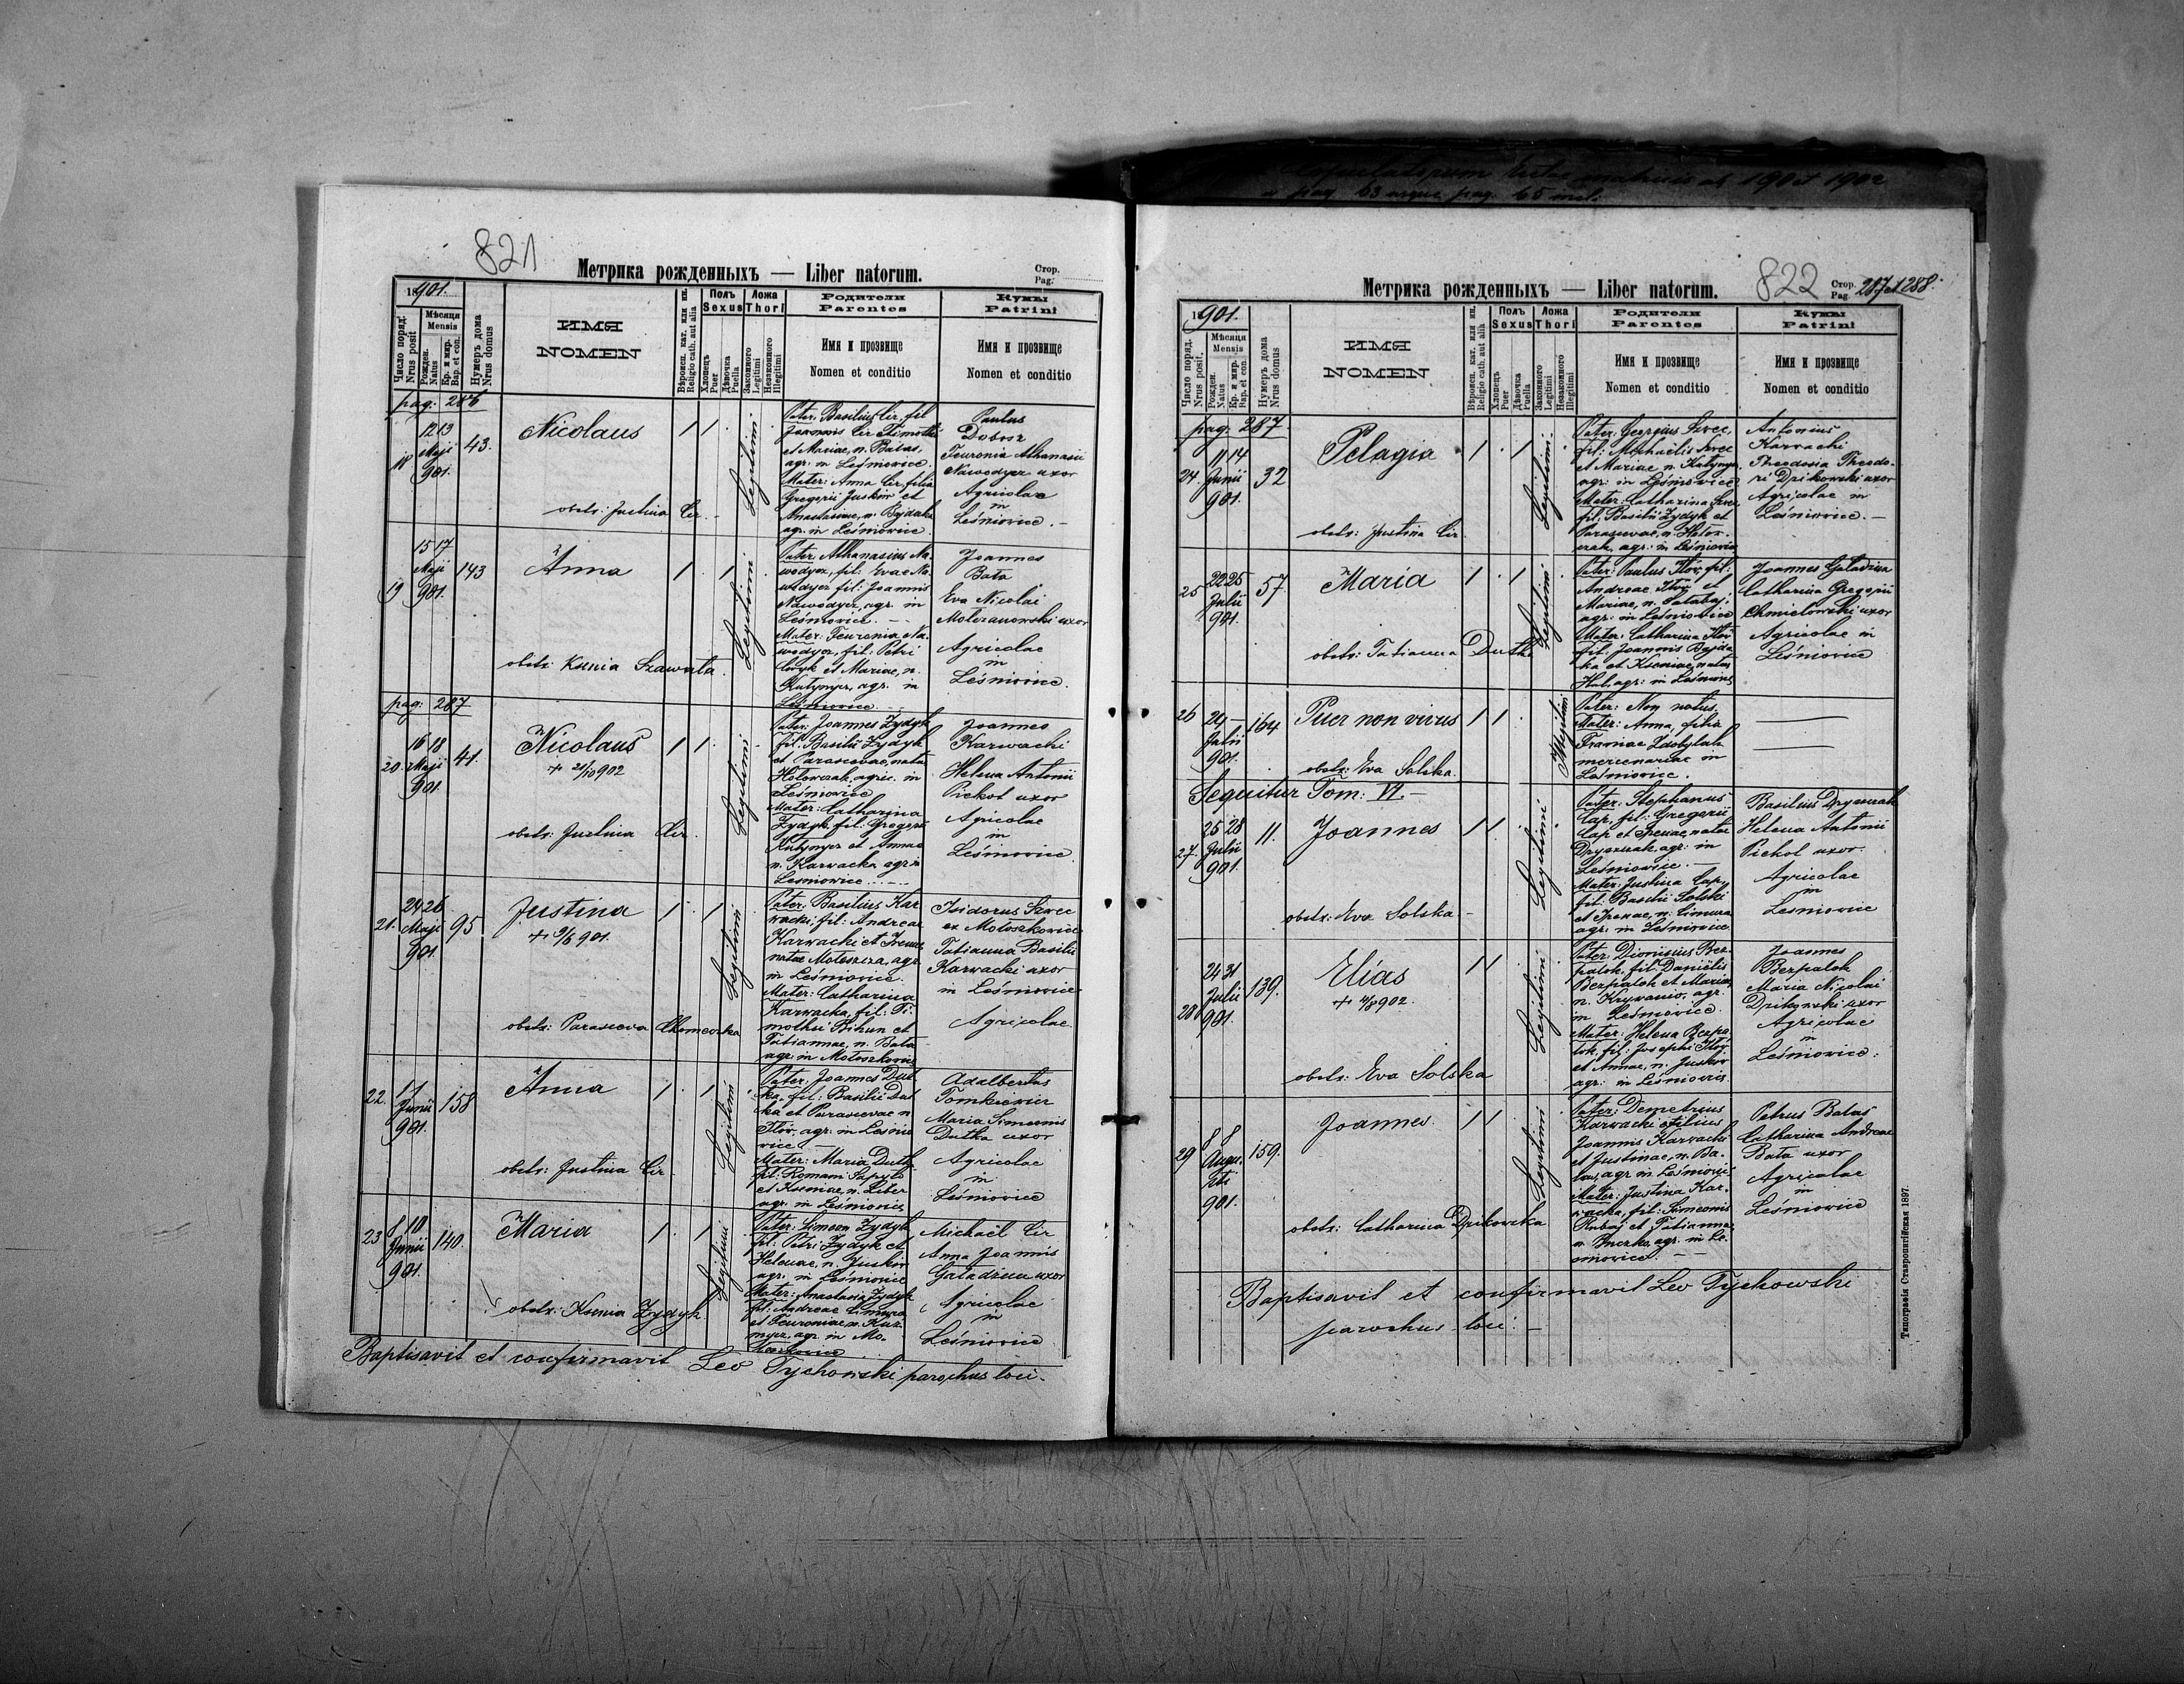 821
Метрика рожденныхъ — Liber natorum.
Стор.
Pag.
1901.
Число поряд.
Nrus posit
Мѣсяця
Mensis
Рожден.
Natus
Кр. и мир.
Bap. et con.
Нумеръ дома
Nrus domus
ИМЯ
NOMEN
Вѣроисп. кат. или ин.
Religio cath. aut alia
Полъ
Sexus
Хлопець
Puer
Дѣвочка
Puella
Ложа
Thori
Законного
Legitimi
Незаконного
Illegitimi
Родители
Parentes
Имя и прозвище
Nomen et conditio
Кумы
Patrini
Имя и прозвище
Nomen et conditio
pag. 286
18
12 13
Maji
901.
43.
Nicolaus
obstr: Justina Cir.
1 1
Legitimi
Pater: Basilius Cir, fil
Joannis Cir Timothei
et Mariae, n. Balas,
agr. in Leśniowice.
Mater: Anna Cir, filia
Gregorii Juskow et
Anastasiae, n. Bajdaka
agr. in Leśniowice.
Paulus
Dobosz
Feuronia Athanasii
Nawodyez uxor
Agricolae
in
Leśniowice. —
19
15 17
Maji
901.
143
Anna
obstr: Ksenia Szawala.
1 1
Legitimi
Pater Athanasius Na-
wodyez, fil: Evae Na-
wodyez fil: Joannis
Nawodyez, agr. in
Leśniowice. —
Mater: Feuronia Na-
wodyez, fil: Petri
et Mariae, n.
Kutynyez, agr. in
Leśniowice
Joannes
Bata
Eva Nicolai
uxor
Agricolae
in
Leśniowice.
pag: 287
20.
16 18
Maji
901
41.
Nicolaus
+ 21/10 902
obstr: Justina Cir.
1 1
Legitimi
Pater: Joannes Zydyk
fil: Basilii Zydyk
et Parascevae, natae
Hotowczak, agric. in
Leśniowice
Mater: Catharina
Zydyk, fil: Gregorii
Kutynyez et Annae
n. Karwacka agr in
Leśniowice. —
Joannes
Karwacki
Helena Antonii
Pickot uxor
Agricolae
in
Leśniowice
21.
24 26
Maji
901.
95
Justina
+ 9/6 901.
obstr: Parasceva
1 1
Legitimi
Pater: Basilius Kar
wacki, fil: Andreae
Karwacki et Irenae
natae agr
in Leśniowice.
Mater: Catharina
Karwacka, fil: Ti-
mothei Bihun et
Tatiannae, n. Bata
agr. in Motoszkowice
Isidorus Szwec
ex Motoszkowice
Tatianna Basilii
Karwacki uxor
in Leśniowice
Agricolae
22.
1 1
Junii
901.
158
Anna
obstr: Justina Cir
1 1
Legitimi
Pater: Joannes Dut
ka, fil: Basilii Dut
ka et Parascevae n.
Ilow, agr. in Leśnio
wice
Mater: Maria Dutka
fil: Romani
et Kseniae, n. Liber
agr. in Leśniowice
Adalbertus
Tomkiewicz
Maria Simeonis
Dutka uxor
Agricolae
in
Leśniowice
23
8 10
Junii
901.
140.
Maria
obstr: Ksenia Zydyk
1 1
Legitimi
Pater: Simeon Zydyk
fil: Petri Zydyk et
Helenae, n. Juskow
agr. in Leśniowice
Mater: Anastasia Zydyk
fil: Andreae Cimura
et Feuroniae n. Kuz
myez, agr. in Mo-
Michaël Cir
Anna Joannis
Gatadżun uxor
Agricolae
in
Leśniowice
Baptisavit et confirmavit Leo Tychowski parochus loci.
pag 63 usque pag. 65 incl.
Метрика рожденныхъ — Liber natorum.
822
Стор.
Pag.
287 et 288.
1901.
Число поряд.
Nrus posit.
Мѣсяця
Mensis
Рожден.
Natus
Кр. и мир.
Bap. et con.
Нумеръ дома
Nrus domus
ИМЯ
NOMEN
Вѣроисп. кат. или ин.
Religio cath. aut alia
Полъ
Sexus
Хлопець
Puer
Дѣвочка
Puella
Ложа
Thori
Законного
Legitimi
Незаконного
Illegitimi
Родители
Parentes
Имя и прозвище
Nomen et conditio
Кумы
Patrini
Имя и прозвище
Nomen et conditio
pag. 287.
24
11 14
Junii
901.
32
Pelagia
obstr: Justina Cir
1 1
Legitimi
Pater: Georgius Szwec,
fil: Michaëlis Szwec
et Mariae n. Kutynyez
agr: in Leśniowice
Mater: Catharina Szwec
fil: Basilii Zydyk et
Parascevae, n. Hotow-
czak, agr: in Leśniowice
Antonius
Karwacki
Theodosia Theodo-
ri Dzikowski uxor
Agricolae in
Leśniowice. —
25
22 25
Julii
901.
57.
Maria
obstr: Tatianna Dutka
1 1
Legitimi
Pater: Paulus Ilow, fil:
Andreae Ilow et
Mariae, n.
agr: in Leśniowice
Mater: Catharina Ilow
fil: Joannis Bajda
ka et Kseniae, natae
Hul, agr: in Leśniowice
Joannes
Catharina Gregorii
Chmielowski uxor
Agricolae in
Leśniowice
26
29 —
Julii
901.
164
Puer non vivus
obstr: Eva Solska.
1 1
Illegitimi
Pater: Non notus.
Mater: Anna, filia
Zdobylak
mercenariae in
Leśniowice.
Sequitur Tom: VI. —
27.
25 28
Julii
901.
11.
Joannes
obstr: Eva Solska. —
1 1
Legitimi
Pater: Stephanus
Cap, fil: Gregorii
Cap et Irenae, natae
Dryszczak, agr: in
Leśniowice. —
Mater: Justina Cap,
fil: Basilii Solski
et Irenae, n. Cimura
agr: in Leśniowice
Basilius Dryszczak
Helena Antonii
Pickot uxor.
Agricolae
in
Leśniowice
28
24 31
Julii
901.
139.
Elias
+ 4/8 902.
obstr: Eva Solska
1 1
Legitimi
Pater: Dionisius Bez-
patok, fil: Daniëlis
Bezpatok et Mariae,
n. agr.
in Leśniowice.
Mater: Helena Bezpa
tok, fil: Josephi Ilow
et Annae, n. Juskow
agr: in Leśniowice
Joannes
Bezpatok
Maria Nicolai
Dzikowski uxor
Agricolae
in
Leśniowice.
29
8 8
Augu-
sti
901.
159.
Joannes.
obstr: Catharina Dzikowska
1 1
Legitimi
Pater: Demetrius
Karwacki filius
Joannis Karwacki
et Justinae, n. Ba-
las, agr in Leśniowice
Mater: Justina Kar-
wacka, fil: Simeonis
et Tatiannae
n. agr. in Le-
śniowice. —
Petrus Balas
Catharina Andreae
Bata uxor
Agricolae
in
Leśniowice
Baptisavit et confirmavit Leo Tychowski
parochus loci. —
Типографія Ставропигійская 1897.